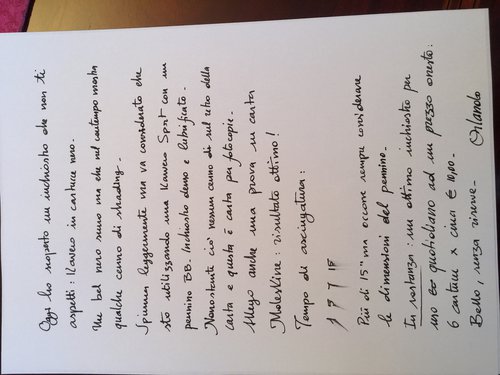 Oggi ho scoperto un inchiostro che non ti
aspetti: Kaweco in cartucce nero.
Un bel nero scuro ma che nel contempo mostra
qualche cenno di shading.
Spiuma leggermente ma va considerato che
sto utilizzando una Kaweco Sport con un
pennino BB. Inchiostro denso e lubrificato.
Nonostante ciò nessun cenno di sul retro della
carta e questa è carta per fotocopie.
Allego anche una prova su carta
Moleskine: risultato ottimo!
Tempo di asciugatura:
1 3 7 15
Più di 15" ma occorre sempre considerare
le dimensioni del pennino.
In sostanza: un ottimo inchiostro per
uso quotidiano ad un prezzo onesto:
6 cartucce x circa €
Bello, senza riserve. Orlando